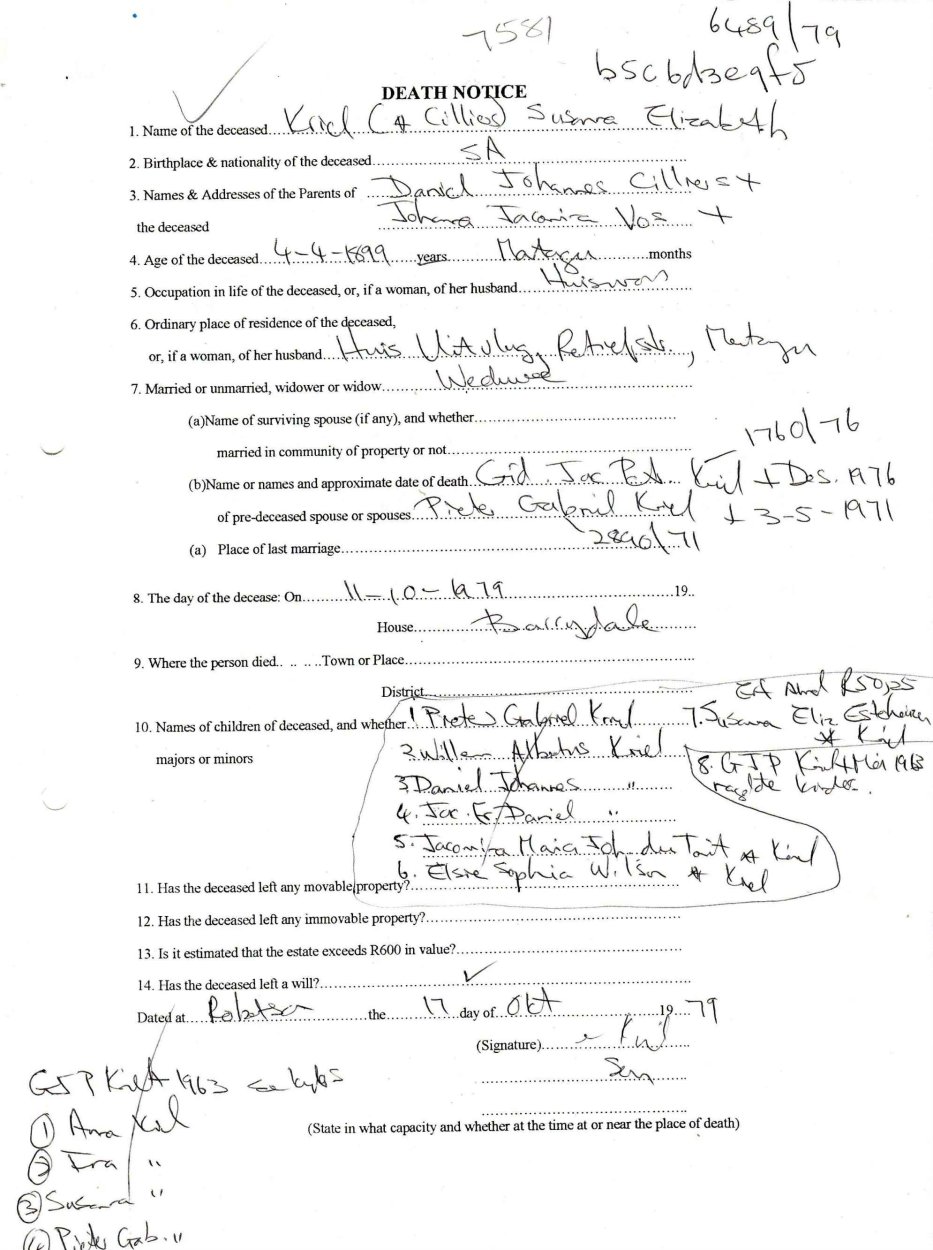 7581
6489/79
b5cbd3e9f5
DEATH NOTICE
1. Name of the deceased....Kriel (* Cilliers) Susanna Elizabeth
2. Birthplace & nationality of the deceased....SA
3. Names & Addresses of the Parents of Daniel Johannes Cilliers +
the deceased Johanna Jacomina Vos +
4. Age of the deceased....4-4-1899....years....Montagu....months
5. Occupation in life of the deceased, or, if a woman, of her husband....Huisvrou
6. Ordinary place of residence of the deceased,
or, if a woman, of her husband....Huis Uitvlug, Retiefstr., Montagu
7. Married or unmarried, widower or widow....Weduwee
(a)Name of surviving spouse (if any), and whether....
married in community of property or not....
1760/76
(b)Name or names and approximate date of death....Gid. Jac. Kriel + Des. 1976
of pre-deceased spouse or spouses....Pieter Gabriel Kriel + 3-5-1971
2890/71
(a) Place of last marriage....
8. The day of the decease: On....11-10-1979....19..
House....Barrydale
9. Where the person died.. .. ..Town or Place....
District....
R50,25
10. Names of children of deceased, and whether 1. Pieter Gabriel Kriel 7. Susanna Eliz Esterhuizen
* Kriel
majors or minors 2. Willem Albertus Kriel
8. GJP Kriel + 1963
3. Daniel Johannes "
nagelate kinders.
4. Jac. Fr. Daniel "
5. Jacomina Maria Joh du Toit * Kriel
6. Elsie Sophia Wilson * Kriel
11. Has the deceased left any movable property?....
12. Has the deceased left any immovable property?....
13. Is it estimated that the estate exceeds R600 in value?....
14. Has the deceased left a will?....✓
Dated at....Robertson....the....17....day of....Okt....19....79
(Signature)....Kriel
Seun
(State in what capacity and whether at the time at or near the place of death)
GJP Kriel + 1963
① Anna Kriel
② Ina "
③ Susanna "
④ Pieter Gab. "